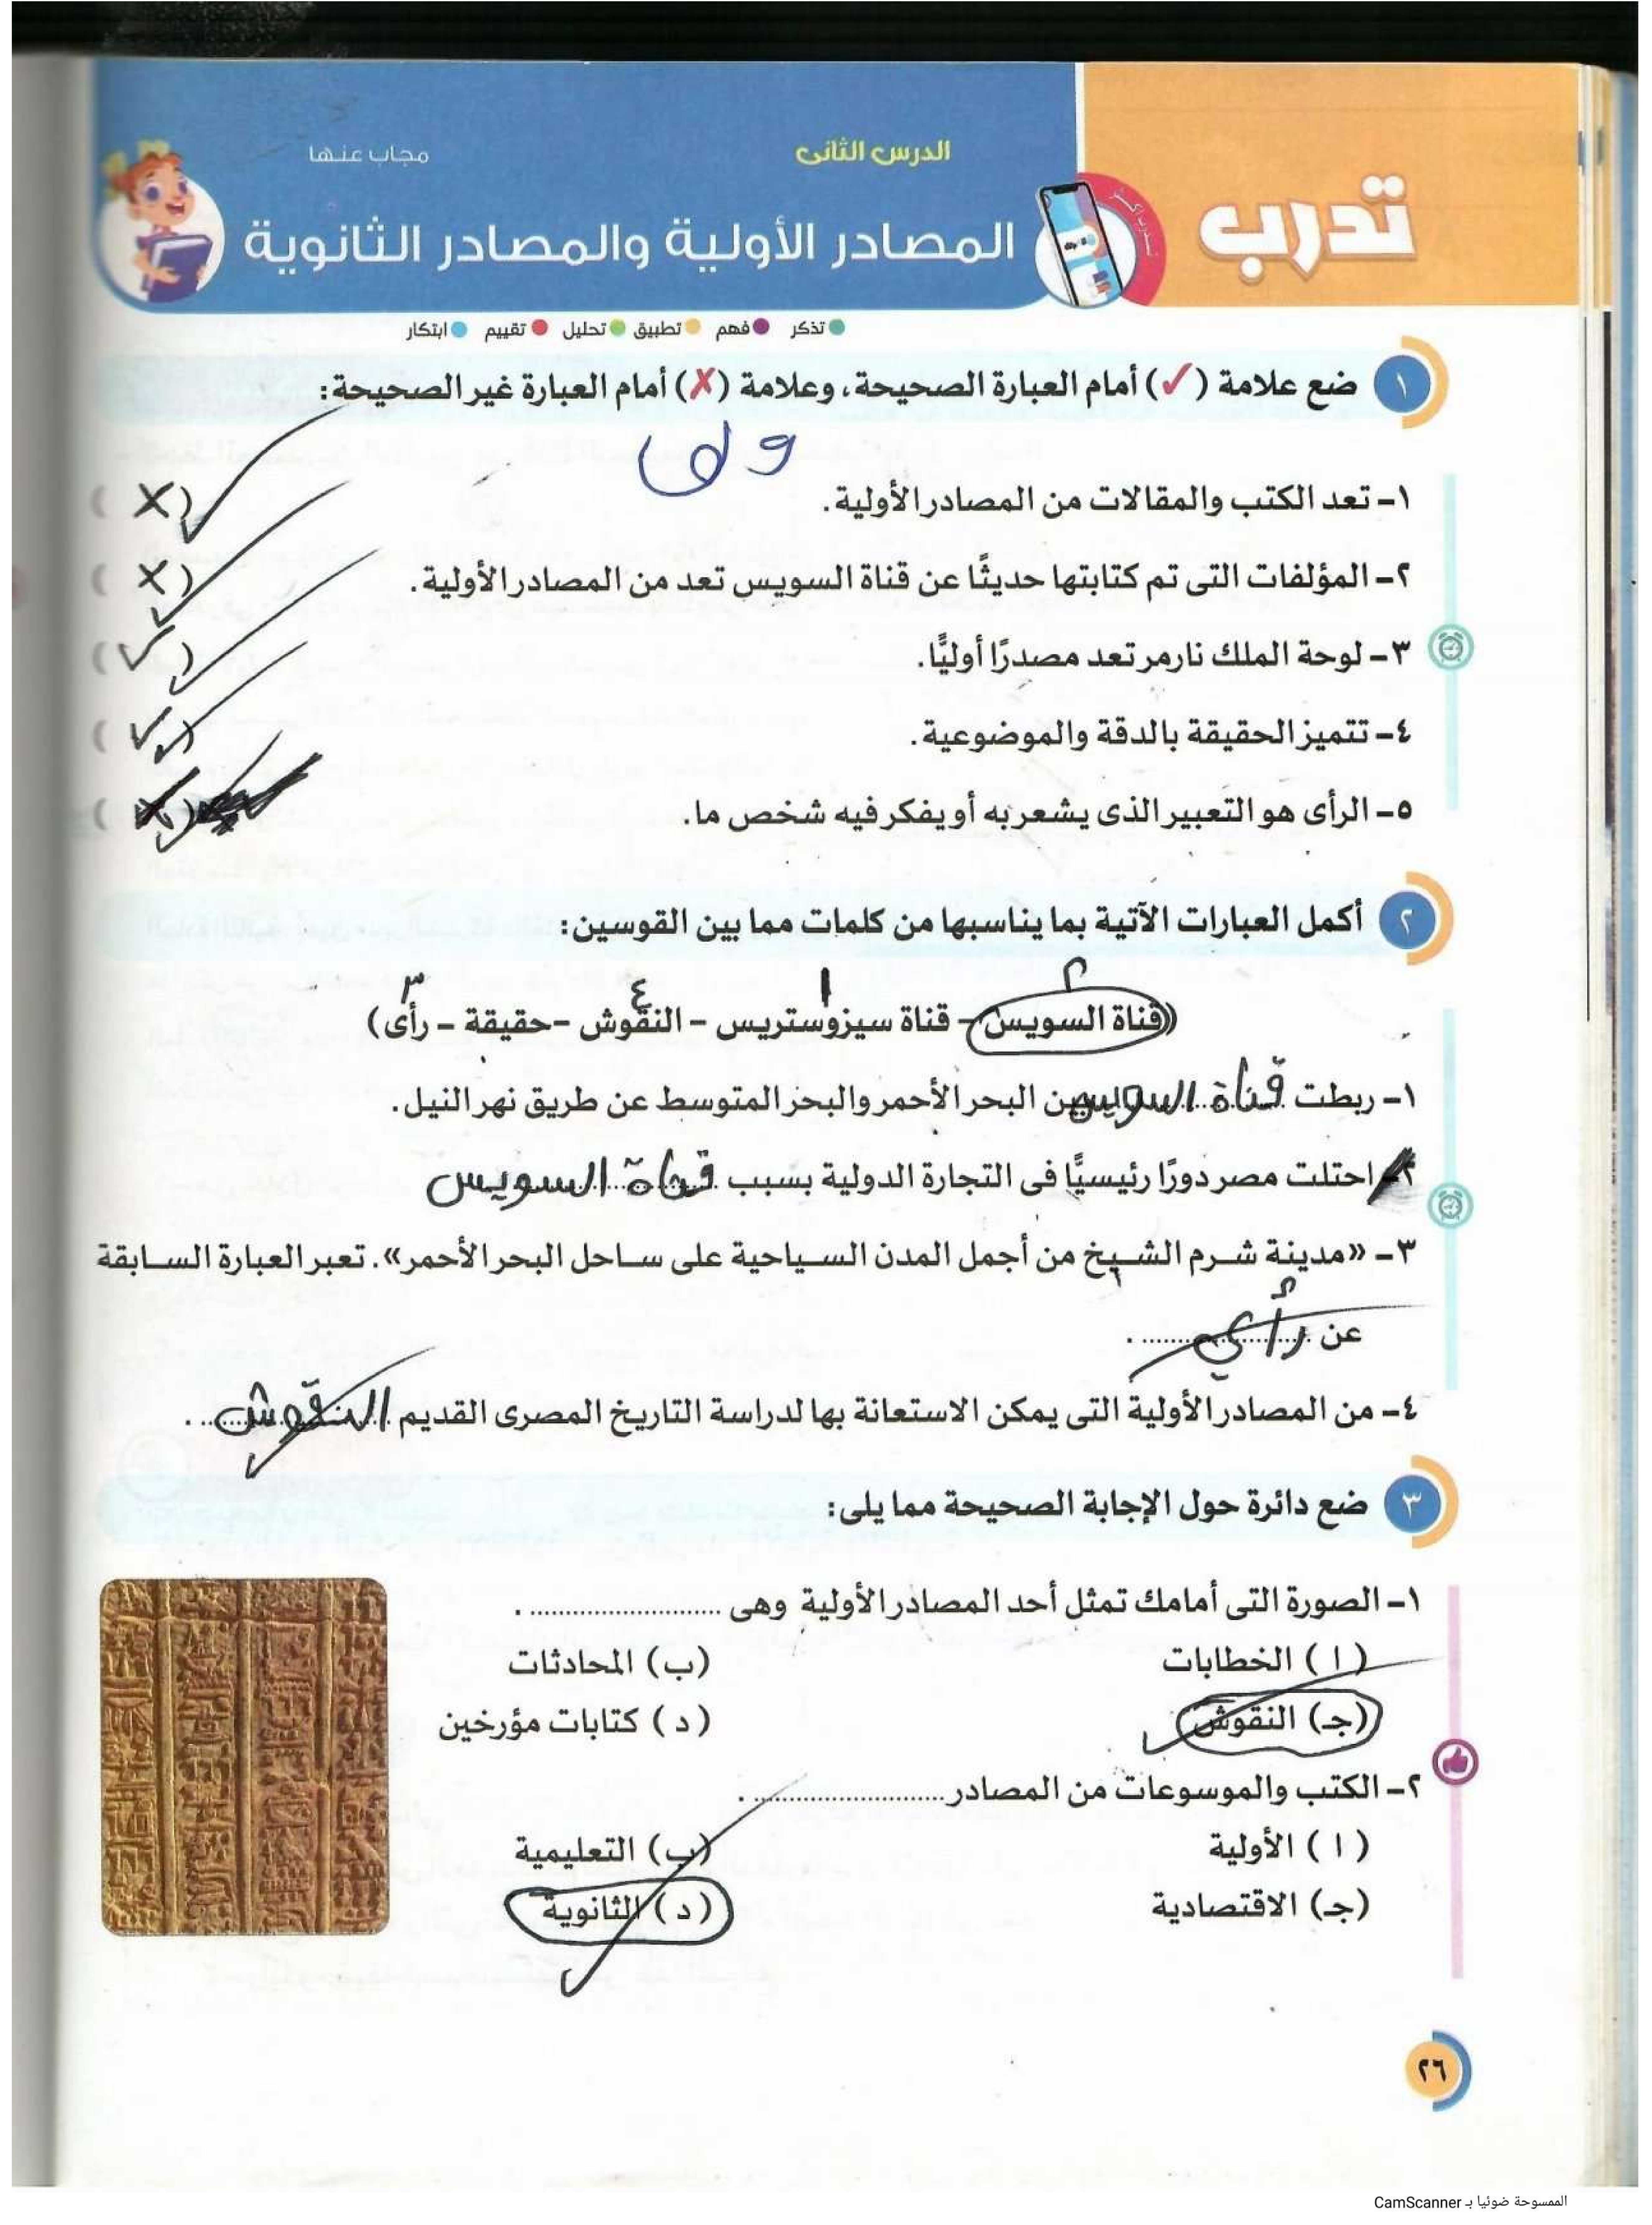 تدرب
الدرس الثانى
مجاب عنها
المصادر الأولية والمصادر الثانوية
تذكر فهم تطبيق تحليل تقييم ابتكار
١ ضع علامة (✓) أمام العبارة الصحيحة، وعلامة (✗) أمام العبارة غير الصحيحة:
١- تعد الكتب والمقالات من المصادر الأولية. (X)
٢- المؤلفات التى تم كتابتها حديثًا عن قناة السويس تعد من المصادر الأولية. (X)
٣- لوحة الملك نارمر تعد مصدرًا أوليًّا. (✓)
٤- تتميز الحقيقة بالدقة والموضوعية. (✓)
٥- الرأى هو التعبير الذى يشعر به أو يفكر فيه شخص ما. ( )
٢ أكمل العبارات الآتية بما يناسبها من كلمات مما بين القوسين:
٢ ١ ٤ ٣
(قناة السويس - قناة سيزوستريس - النقوش - حقيقة - رأى)
١- ربطت قناة السويس بين البحر الأحمر والبحر المتوسط عن طريق نهر النيل.
٢- احتلت مصر دورًا رئيسيًّا فى التجارة الدولية بسبب قناة السويس
٣- «مدينة شرم الشيخ من أجمل المدن السياحية على ساحل البحر الأحمر». تعبر العبارة السابقة
عن رأي .
٤- من المصادر الأولية التى يمكن الاستعانة بها لدراسة التاريخ المصرى القديم النقوش .
٣ ضع دائرة حول الإجابة الصحيحة مما يلى:
١- الصورة التى أمامك تمثل أحد المصادر الأولية وهى .......................... .
(ا) الخطابات (ب) المحادثات
(جـ) النقوش (د) كتابات مؤرخين
٢- الكتب والموسوعات من المصادر .......................... .
(ا) الأولية (ب) التعليمية
(جـ) الاقتصادية (د) الثانوية
٢٦
الممسوحة ضوئيا بـ CamScanner